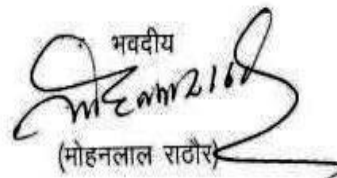 भवदीय
(मोहनलाल राठौर)